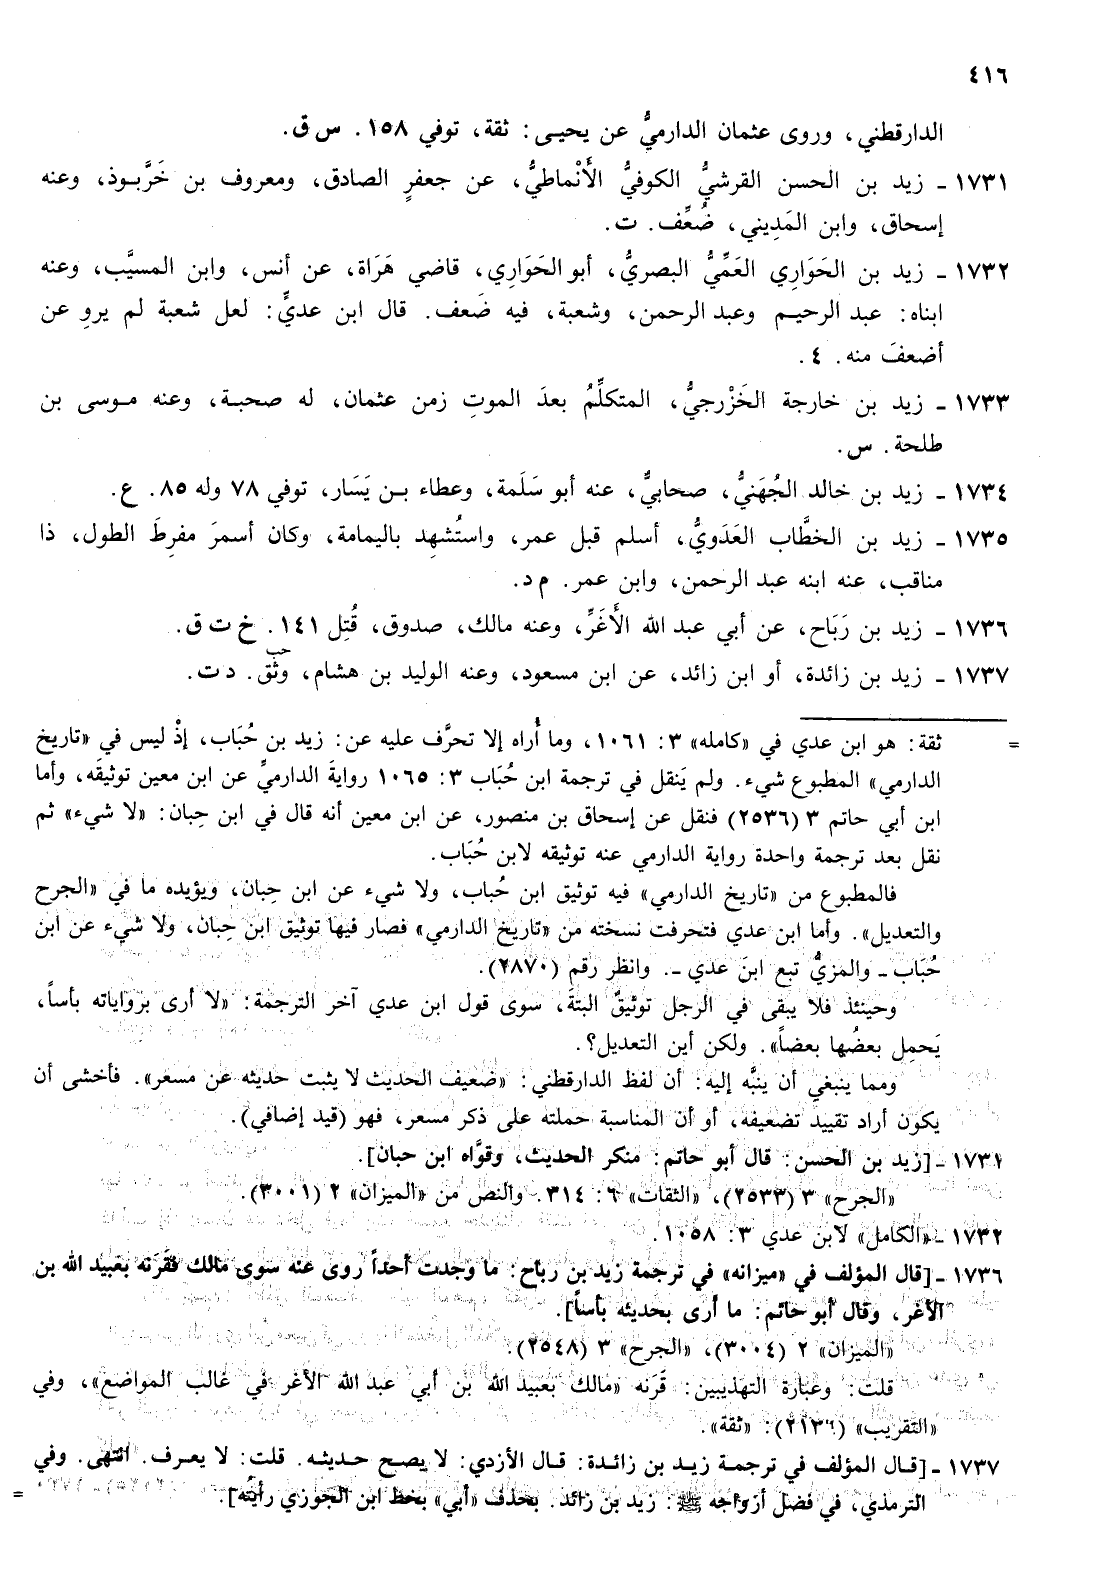 ٤١٦
الدارقطني، وروى عثمان الدارميُّ عن يحيـى: ثقة، توفي ١٥٨. س ق.
١٧٣١ ـ زيد بن الحسن القرشيُّ الكوفيُّ الأَنْماطيُّ، عن جعفرٍ الصادق، ومعروف بن خَرَّبـوذ، وعنه
إسحاق، وابن المَدِيني، ضُعِّف. ت.
١٧٣٢ ـ زيد بن الحَوَارِي العَمِّيُّ البصريُّ، أبو الحَوَارِي، قاضي هَرَاة، عن أنس، وابن المسيَّب، وعنه
ابناه: عبد الرحيـم وعبد الرحمن، وشعبة، فيه ضَعف. قال ابن عديٍّ: لعل شعبة لم يروِ عن
أضعفَ منه. ٤.
١٧٣٣ ـ زيد بن خارجة الخَزْرجيُّ، المتكلِّمُ بعدَ الموتِ زمن عثمان، له صحبـة، وعنه مـوسى بن
طلحة. س.
١٧٣٤ ـ زيد بن خالد الجُهَنيُّ، صحابيٌّ، عنه أبو سَلَمة، وعطاء بـن يَسَار، توفي ٧٨ وله ٨٥. ع.
١٧٣٥ ـ زيد بن الخطَّاب العَدَويُّ، أسلم قبل عمر، واستُشهِد باليمامة، وكان أسمرَ مفرِطَ الطول، ذا
مناقب، عنه ابنه عبد الرحمن، وابن عمر. م د.
١٧٣٦ ـ زيد بن رَبَاح، عن أبي عبد الله الأَغَرِّ، وعنه مالك، صدوق، قُتِل ١٤١. خ ت ق.
١٧٣٧ ـ زيد بن زائدة، أو ابن زائد، عن ابن مسعود، وعنه الوليد بن هشام، وثِّق. د ت.
حب
= ثقة: هو ابن عدي في «كامله» ٣: ١٠٦١، وما أُراه إلا تحرَّف عليه عن: زيد بن حُبَاب، إذْ ليس في «تاريخ
الدارمي» المطبوع شيء. ولم يَنقل في ترجمة ابن حُبَاب ٣: ١٠٦٥ روايةَ الدارميِّ عن ابن معين توثيقَه، وأما
ابن أبي حاتم ٣ (٢٥٣٦) فنقل عن إسحاق بن منصور، عن ابن معين أنه قال في ابن حِبان: «لا شيء» ثم
نقل بعد ترجمة واحدة رواية الدارمي عنه توثيقه لابن حُبَاب.
فالمطبوع من «تاريخ الدارمي» فيه توثيق ابن حُباب، ولا شيء عن ابن حِبان، ويؤيده ما في «الجرح
والتعديل». وأما ابن عدي فتحرفت نسخته من «تاريخ الدارمي» فصار فيها توثيق ابن حِبان، ولا شيء عن ابن
حُبَاب ـ والمزيُّ تبع ابنَ عدي ـ. وانظر رقم (٢٨٧٠).
وحينئذ فلا يبقى في الرجل توثيقٌ البتةَ، سوى قول ابن عدي آخر الترجمة: «لا أرى برواياته بأساً،
يَحمِل بعضُها بعضاً». ولكن أين التعديل؟.
ومما ينبغي أن ينبَّه إليه: أن لفظ الدارقطني: «ضعيف الحديث لا يثبت حديثه عن مسعر». فأخشى أن
يكون أراد تقييد تضعيفه، أو أن المناسبة حملته على ذكر مسعر، فهو (قيد إضافي).
١٧٣١ ـ [زيد بن الحسن: قال أبو حاتم: منكر الحديث، وقوَّاه ابن حبان].
«الجرح» ٣ (٢٥٣٣)، «الثقات» ٦: ٣١٤. والنص من «الميزان» ٢ (٣٠٠١).
١٧٣٢ ـ «الكامل» لابن عدي ٣: ١٠٥٨.
١٧٣٦ ـ [قال المؤلف في «ميزانه» في ترجمة زيد بن رباح: ما وجدت أحداً روى عنه سوى مالك فقَرَنه بعبيد الله بن
الأغر، وقال أبو حاتم: ما أرى بحديثه بأساً].
«الميزان» ٢ (٣٠٠٤)، «الجرح» ٣ (٢٥٤٨).
قلت: وعبارة التهذيبين: قَرَنه «مالك بعبيد الله بن أبي عبد الله الأغر في غالب المواضع»، وفي
«التقريب» (٢١٣٦): «ثقة».
١٧٣٧ ـ [قـال المؤلف في ترجمـة زيـد بن زائدة: قـال الأزدي: لا يصـح حـديثـه. قلت: لا يعـرف. انتهى. وفي
الترمذي، في فضل أزواجه ﷺ: زيد بن زائد. بحذف «أبي» بخط ابن الجوزي رأيته]. =